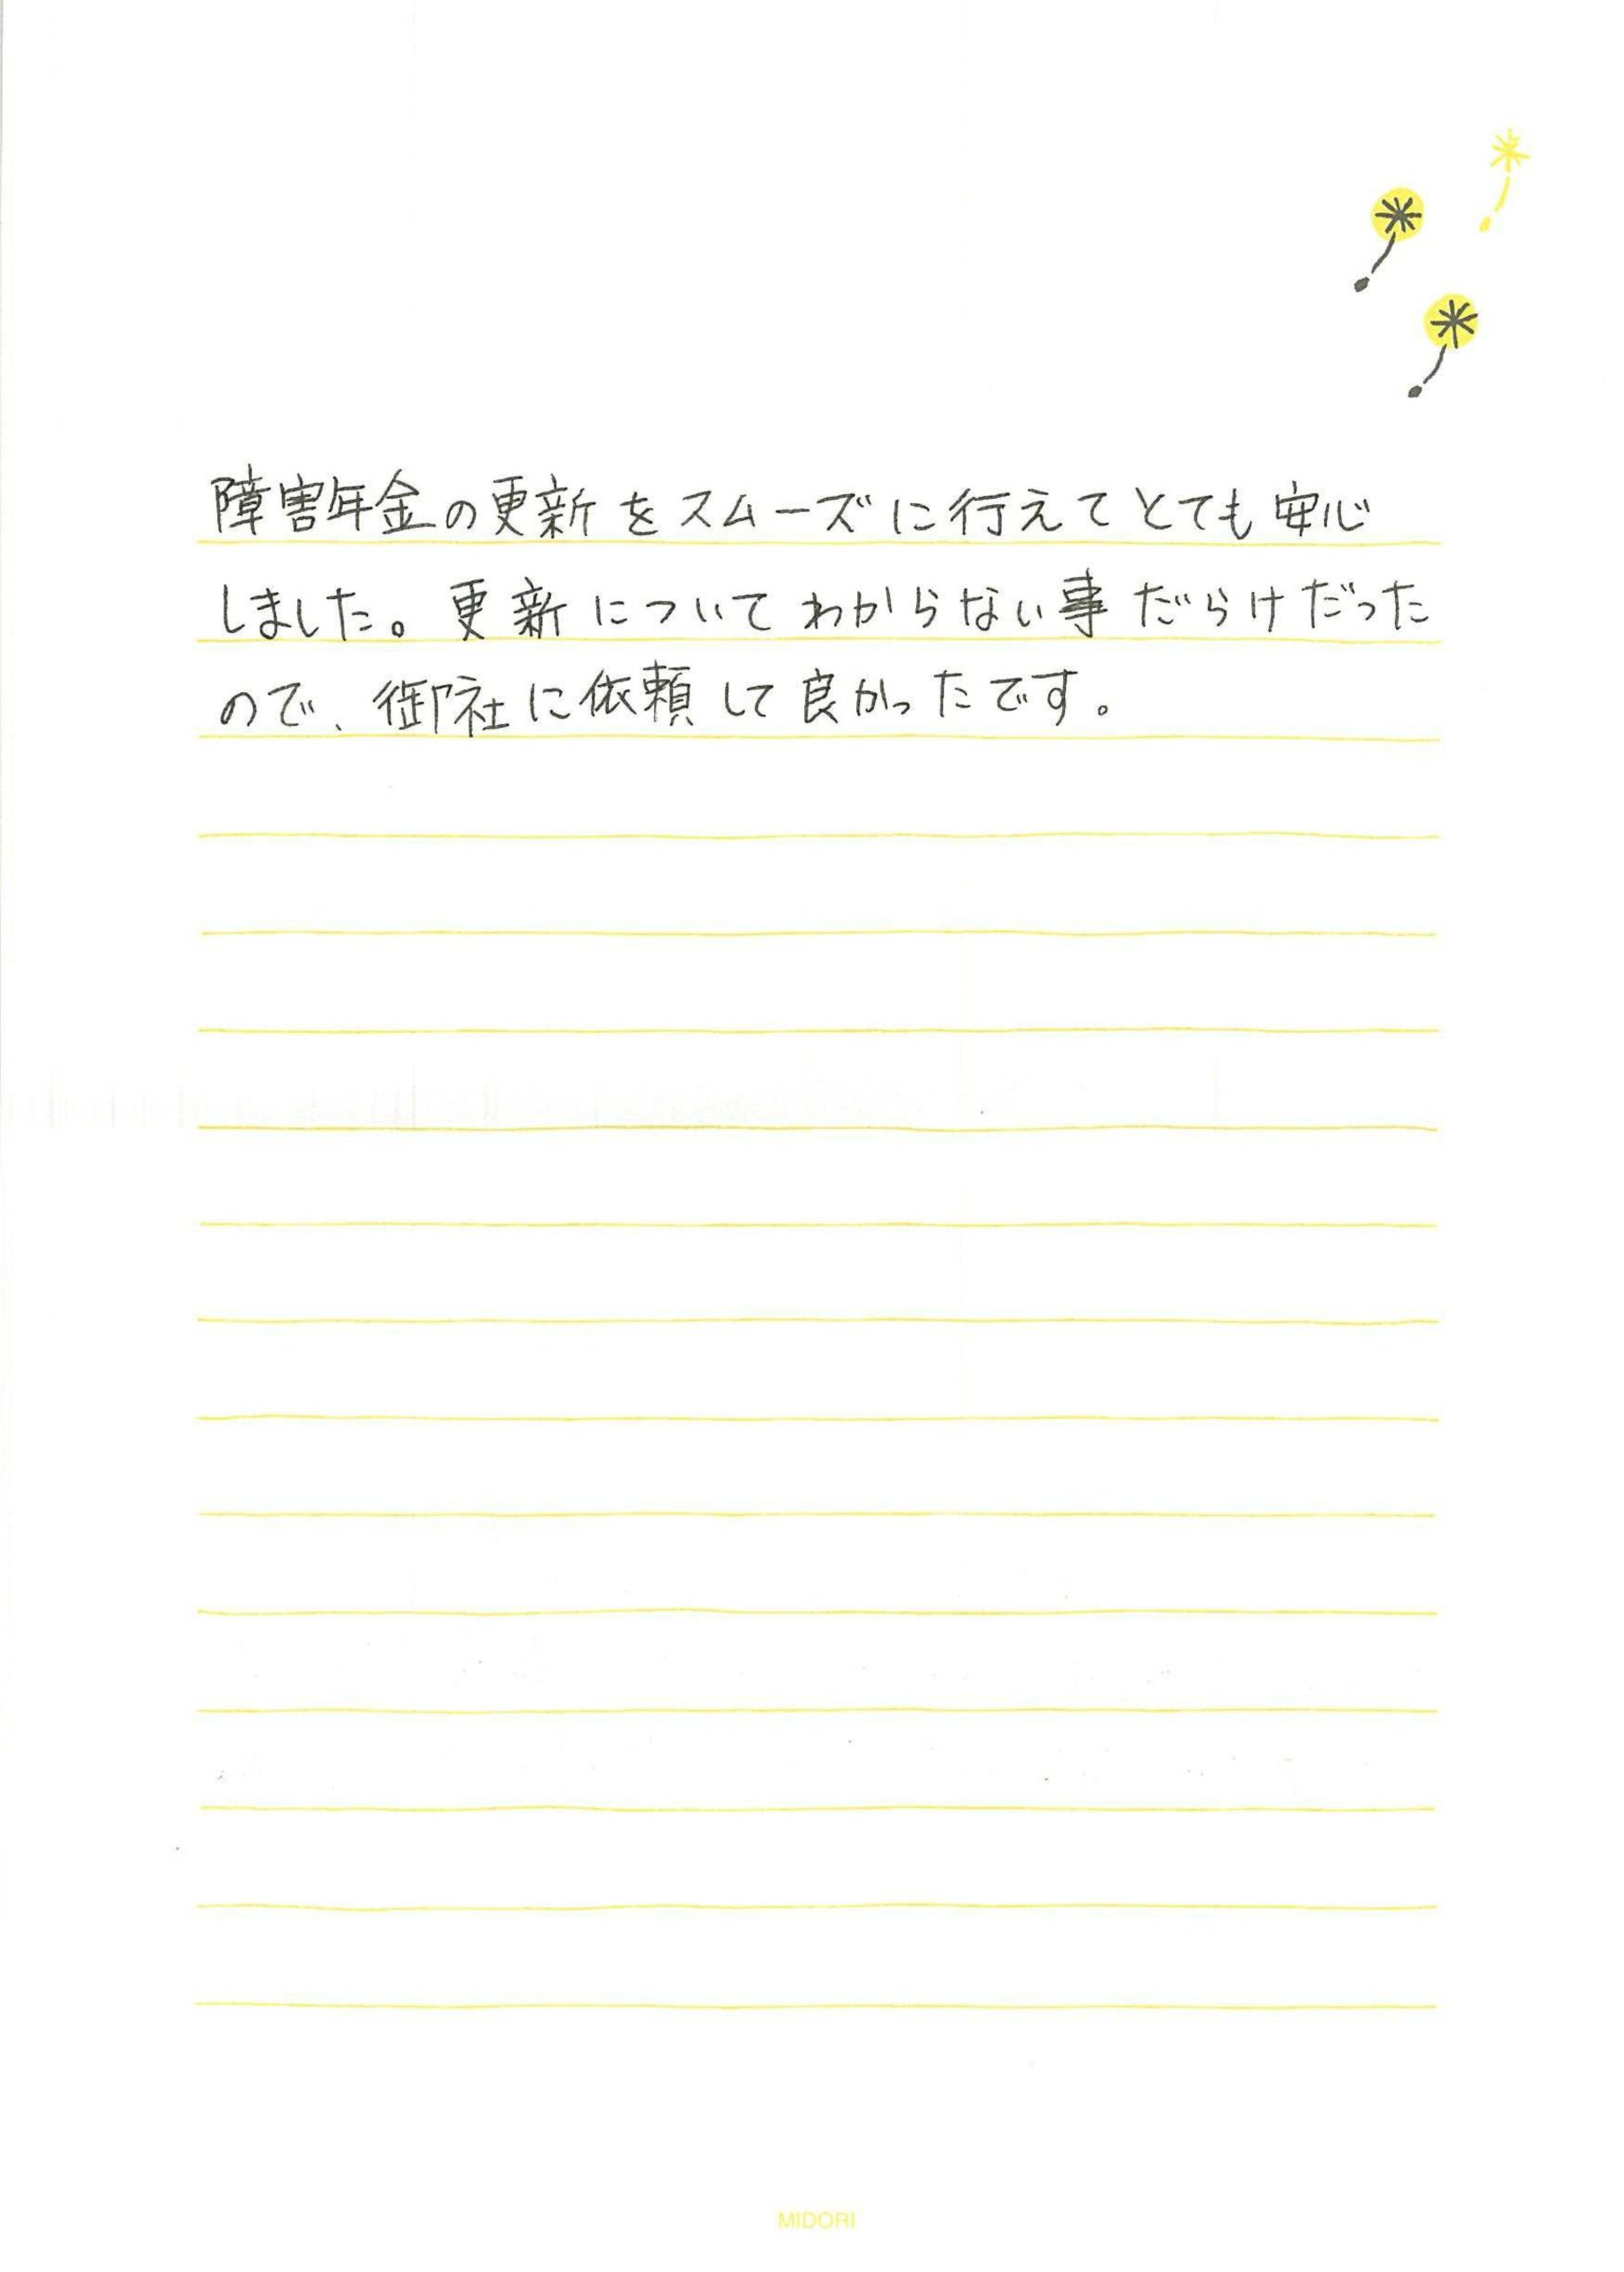 障害年金の更新をスムーズに行えてとても安心
しました。更新についてわからない事だらけだった
ので、御社に依頼して良かったです。
MIDORI